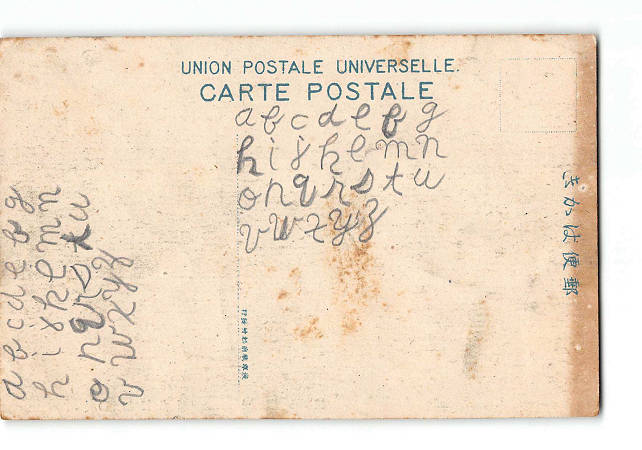 UNION POSTALE UNIVERSELLE.
CARTE POSTALE
a b c d e f g
h i j k l m n
o p q r s t u
v w x y z
郵便はかき
a b c d e f g
h i j k l m n
o p q r s t u
v w x y z